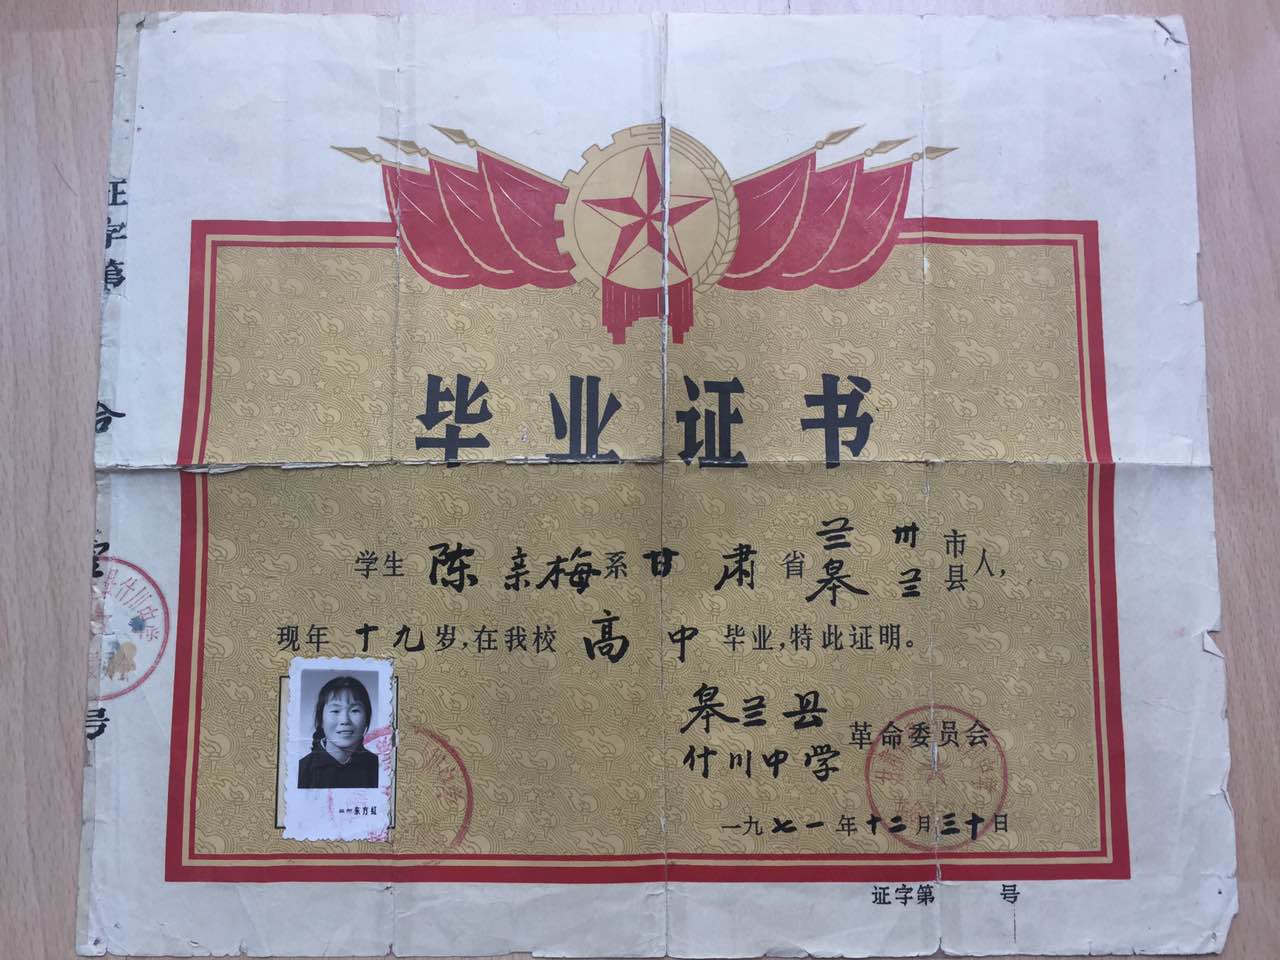 毕业证书
学生 陈亲梅系甘肃省兰州市人,
皋兰县
现年十九岁,在我校高中毕业,特此证明。
皋兰县
什川中学
革命委员会
一九七一年十二月三十日
东方红
证字第 号
证字第
号